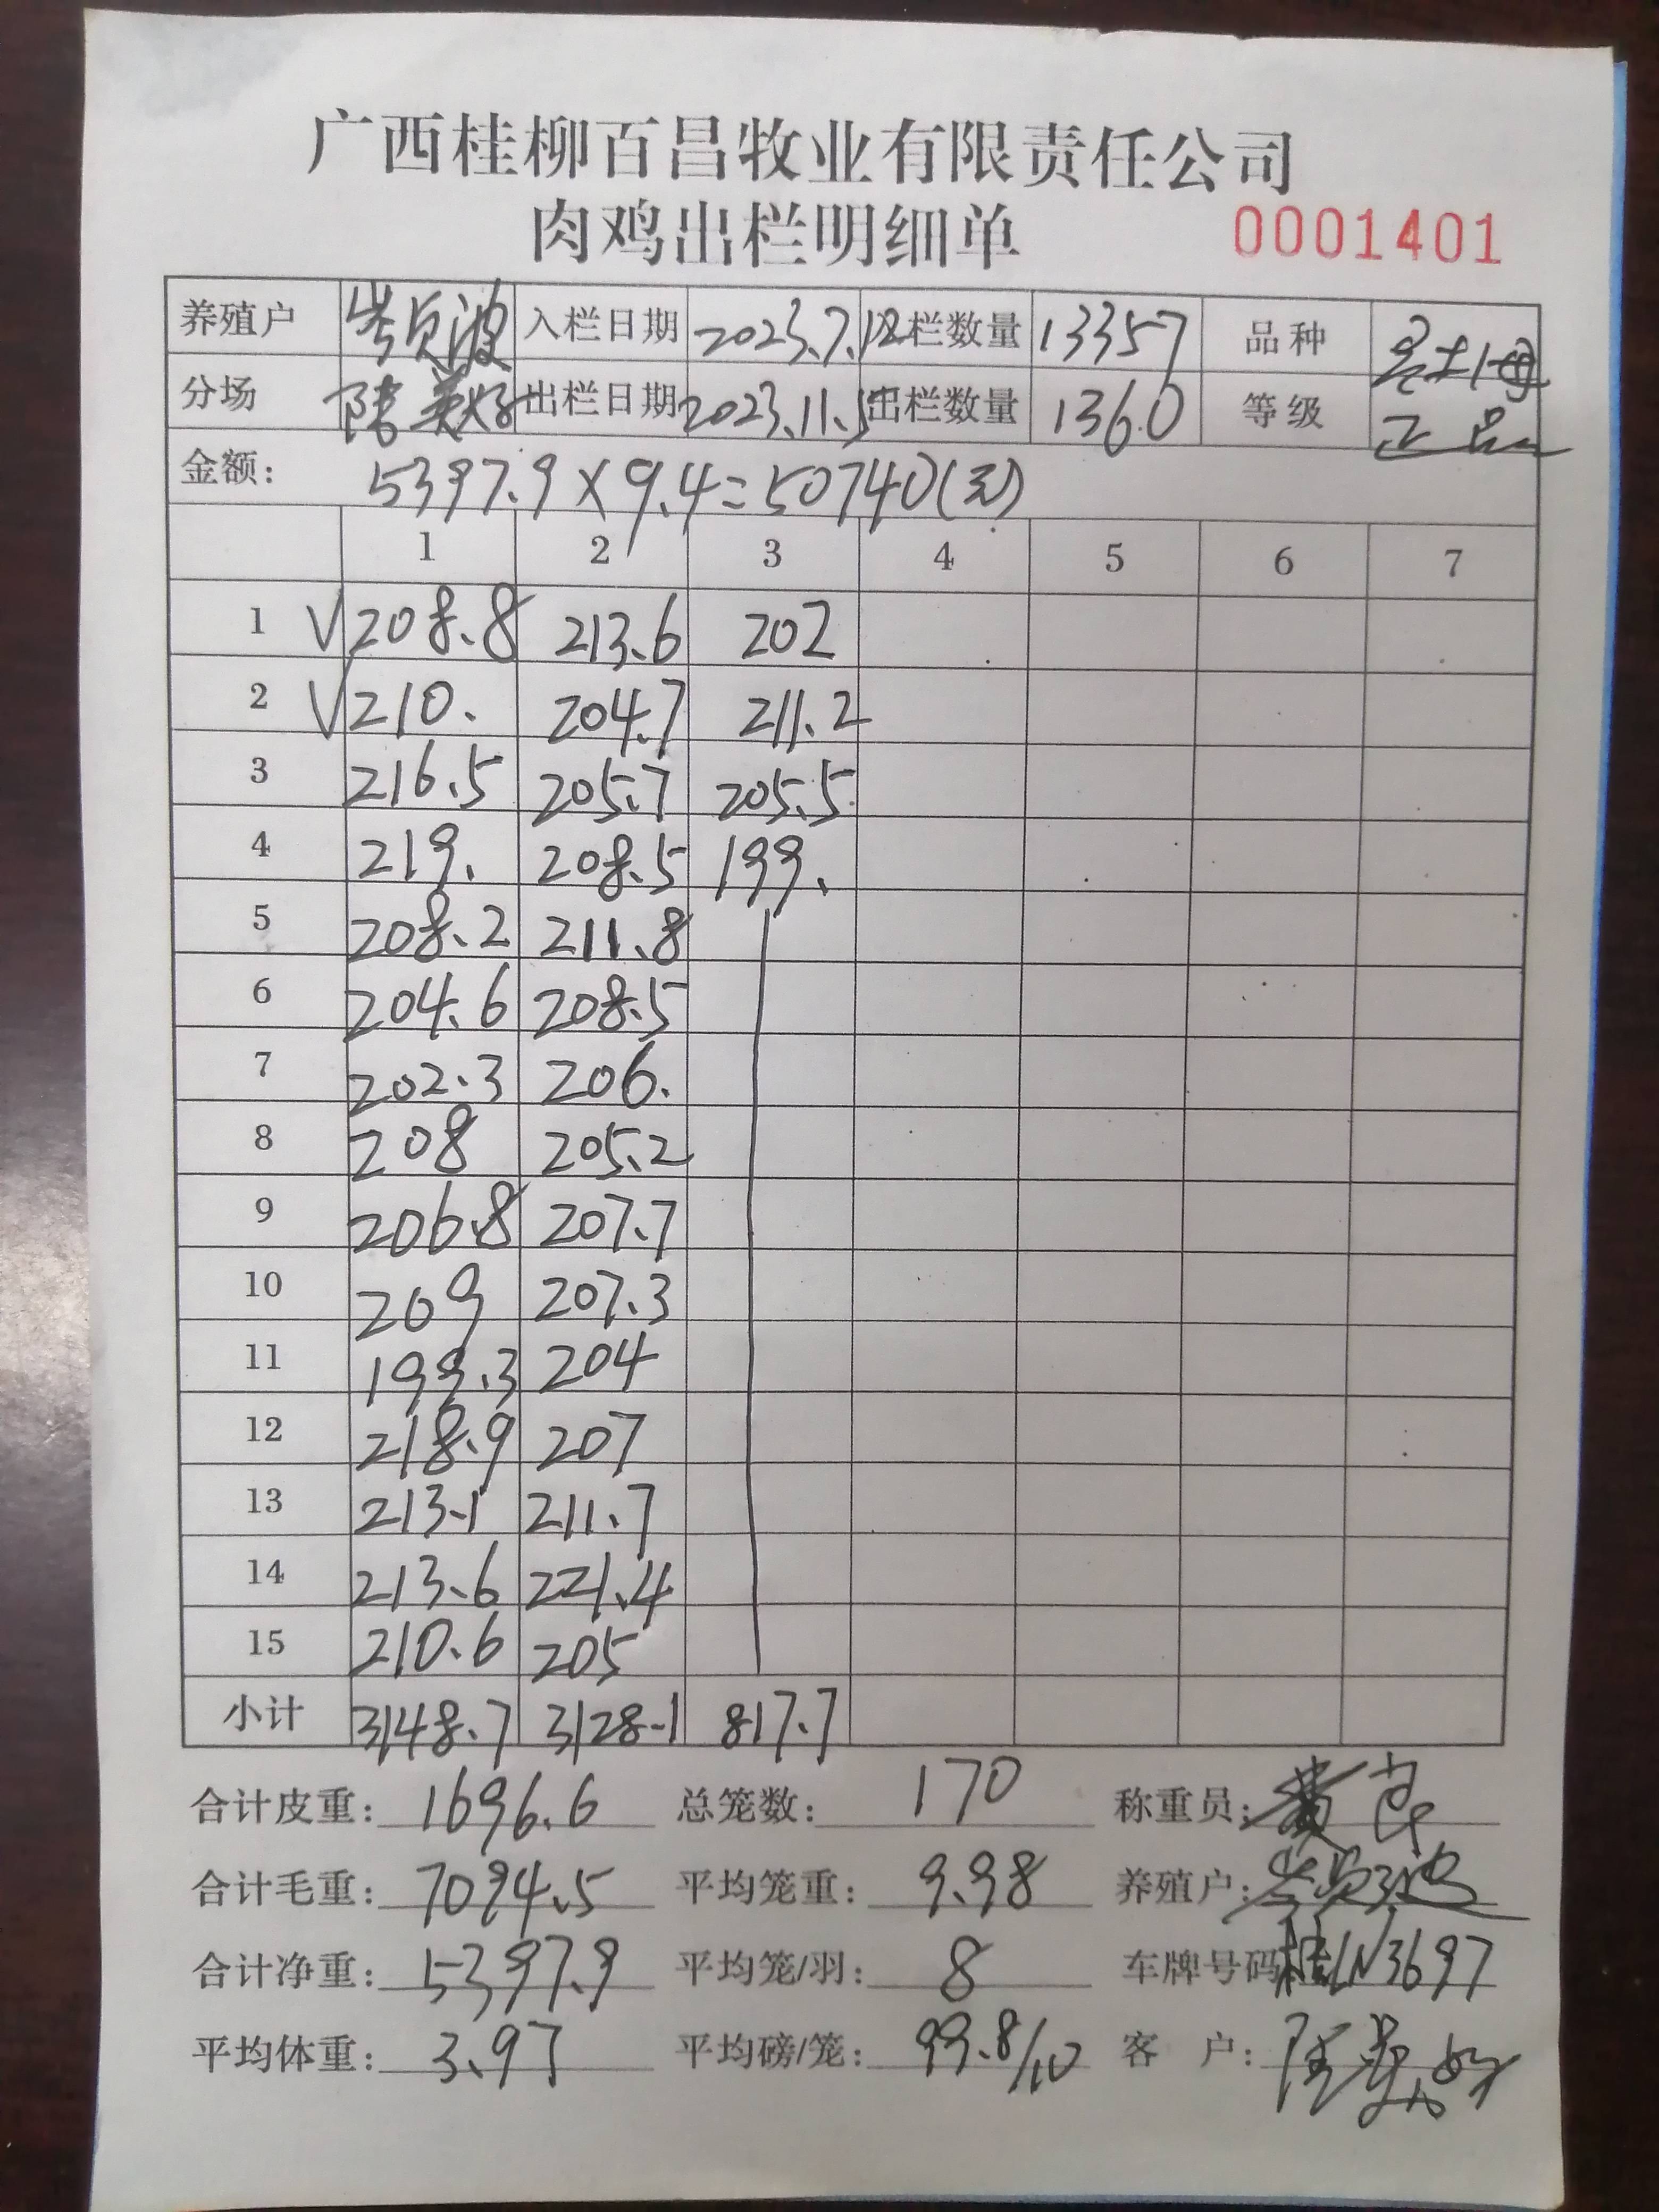 广西桂柳百昌牧业有限责任公司
肉鸡出栏明细单 0001401
养殖户 入栏日期 2023.7.12 入栏数量 13357 品种
分场 陈 出栏日期 2023.11.5 出栏数量 1360 等级 正品
金额: 5397.9×9.4=50740(元)
1 2 3 4 5 6 7
1 √208.8 213.6 202
2 √210. 204.7 211.2
3 216.5 205.7 205.5
4 219. 208.5 199.
5 208.2 211.8
6 204.6 208.5
7 202.3 206.
8 208 205.2
9 206.8 207.7
10 209 207.3
11 199.3 204
12 218.9 207
13 213.1 211.7
14 213.6 221.4
15 210.6 205
小计 3148.7 3128.1 817.7
合计皮重: 1696.6 总笼数: 170 称重员: 黄
合计毛重: 7094.5 平均笼重: 9.98 养殖户:
合计净重: 5397.9 平均笼/羽: 8 车牌号码 桂LN3697
平均体重: 3.97 平均磅/笼: 99.8/10 客 户: